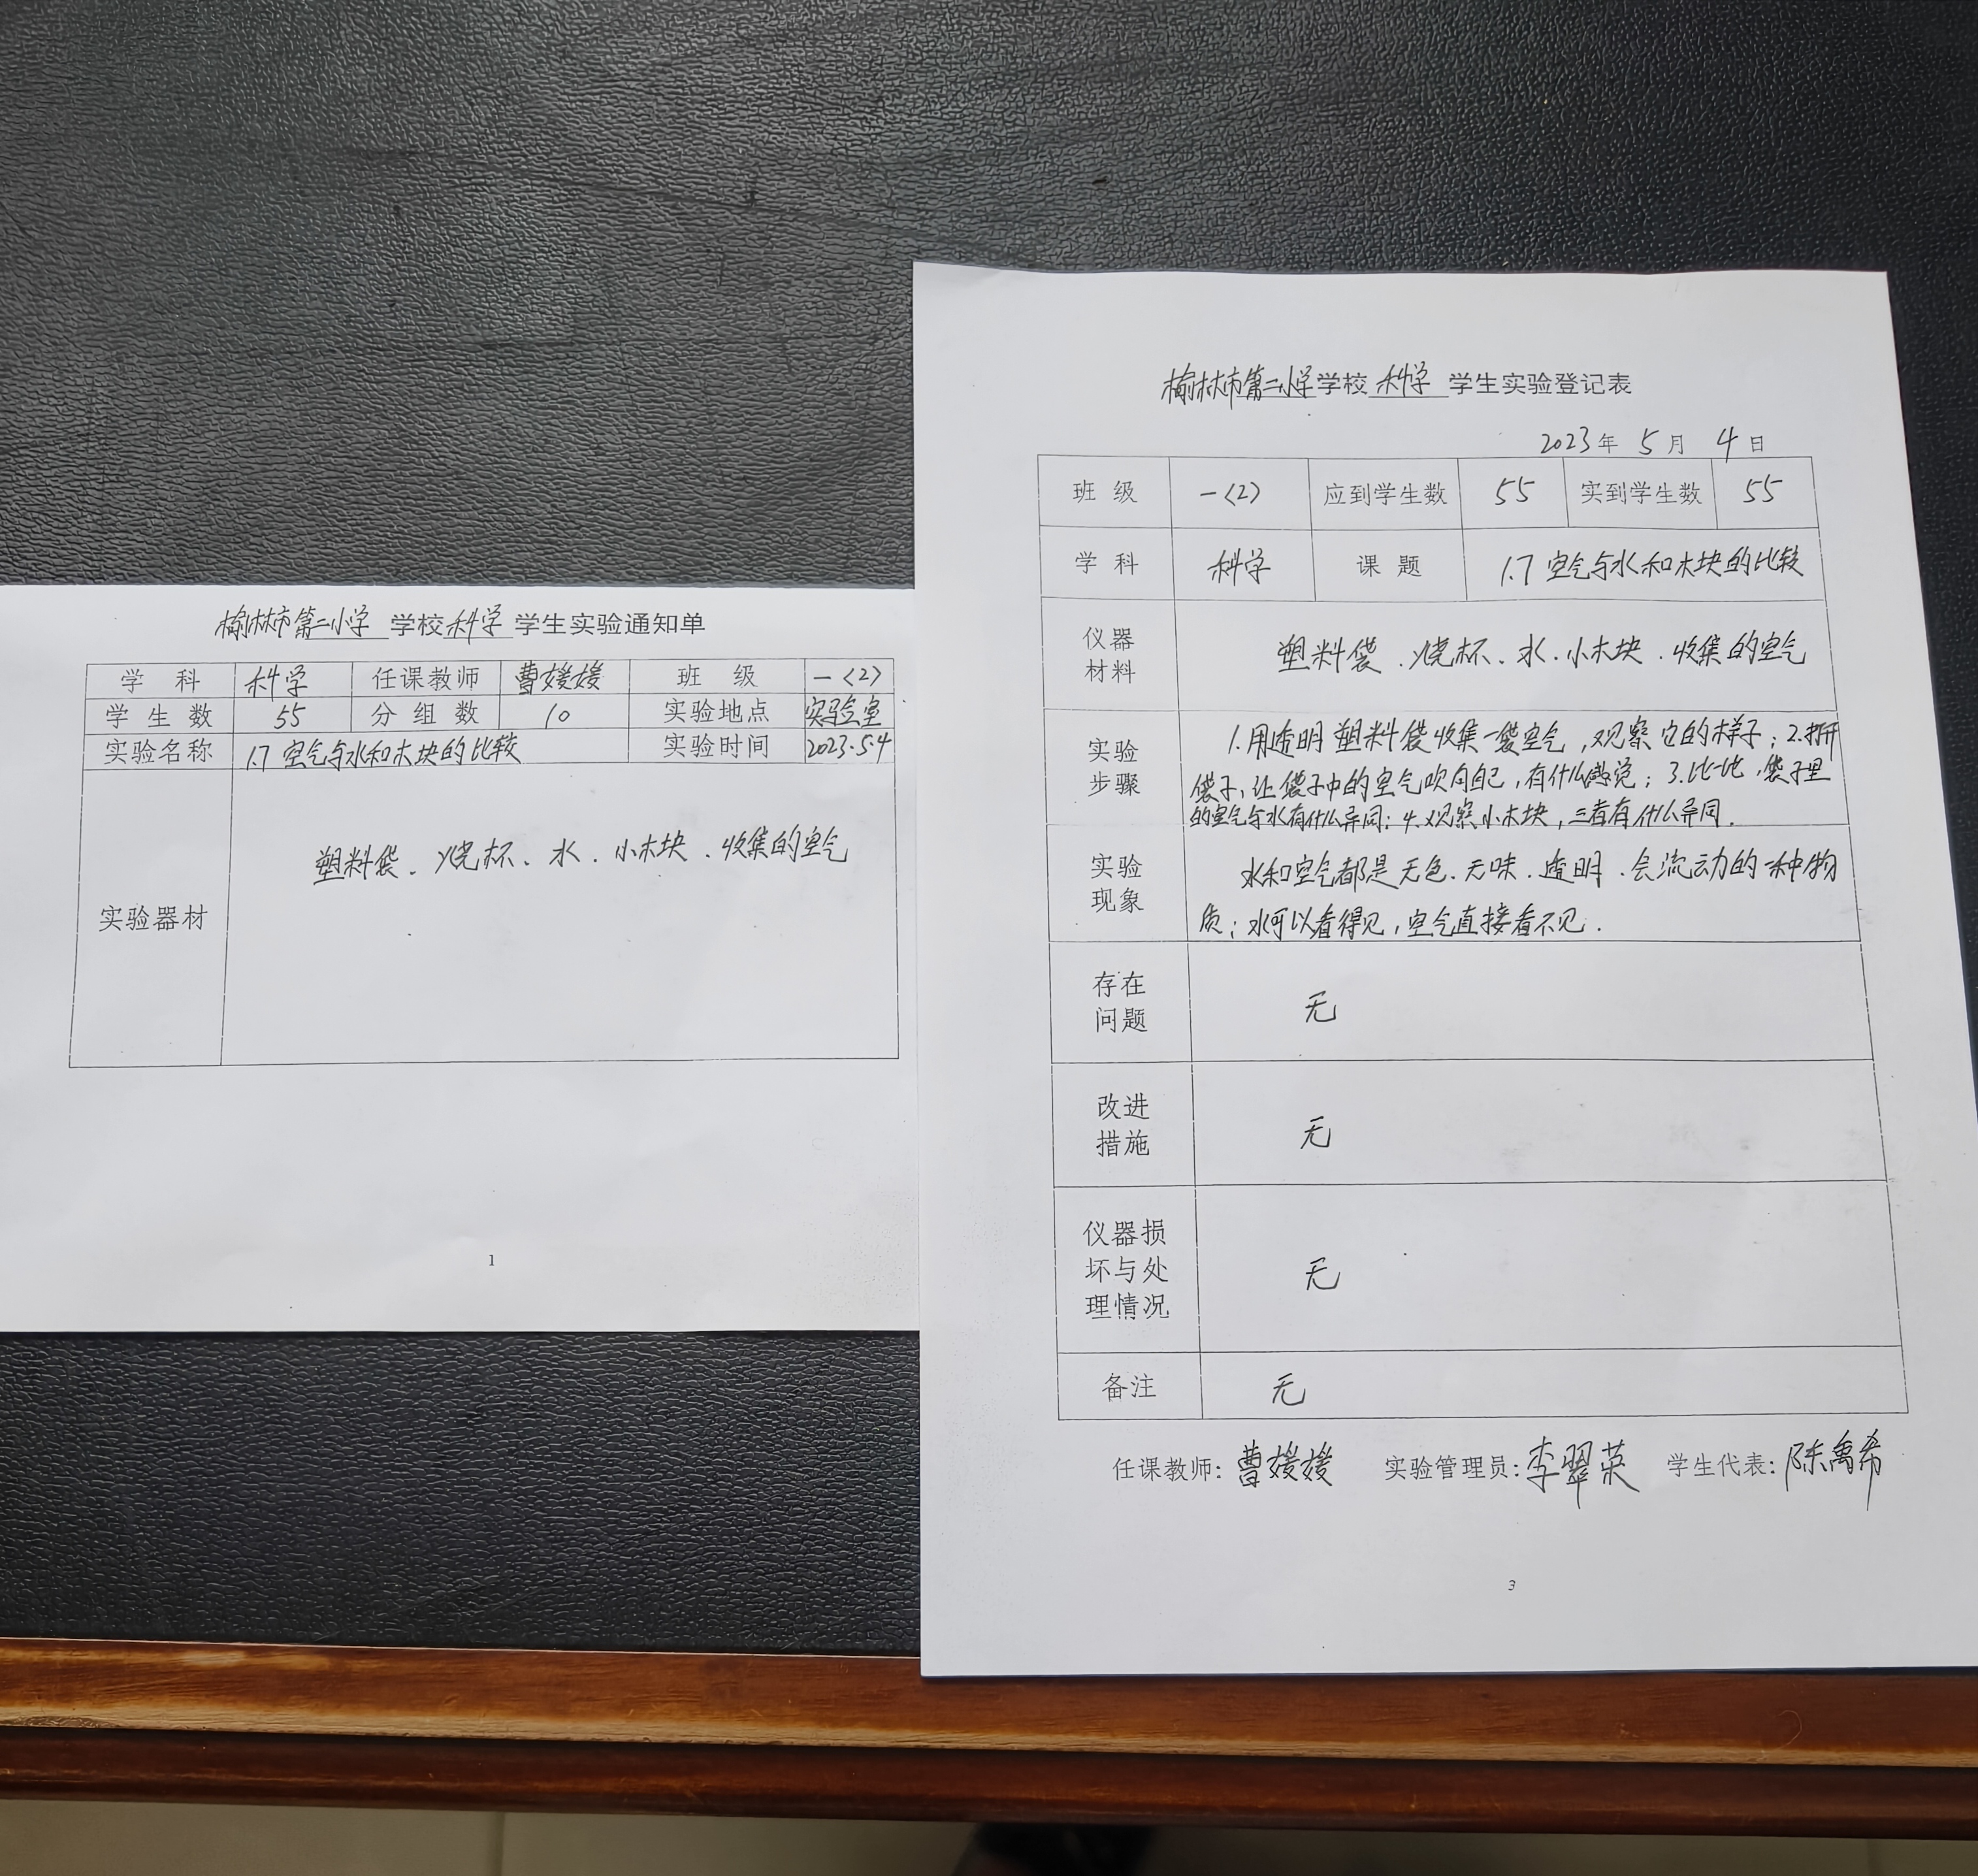 榆林市第二小学学校科学学生实验通知单
学科 科学 任课教师 曹媛媛 班级 一〈2〉
学生数 55 分组数 10 实验地点 实验室
实验名称 1.7 空气与水和木块的比较 实验时间 2023.5.4
实验器材 塑料袋、烧杯、水、小木块、收集的空气
1
榆林市第二小学学校科学学生实验登记表
2023年5月4日
班级 一〈2〉 应到学生数 55 实到学生数 55
学科 科学 课题 1.7 空气与水和木块的比较
仪器
材料
塑料袋、烧杯、水、小木块、收集的空气
实验
步骤
1.用透明塑料袋收集一袋空气,观察它的样子;2.打开
袋子,让袋子中的空气吹向自己,有什么感觉;3.比一比,袋子里
的空气与水有什么异同;4.观察小木块,三者有什么异同.
实验
现象
水和空气都是无色、无味、透明、会流动的一种物
质;水可以看得见,空气直接看不见.
存在
问题
无
改进
措施
无
仪器损
坏与处
理情况
无
备注 无
任课教师:曹媛媛 实验管理员:李翠英 学生代表:陈禹希
3